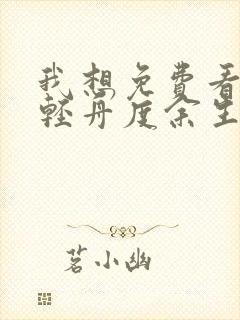 我想免费看
轻舟度余生
茗小幽